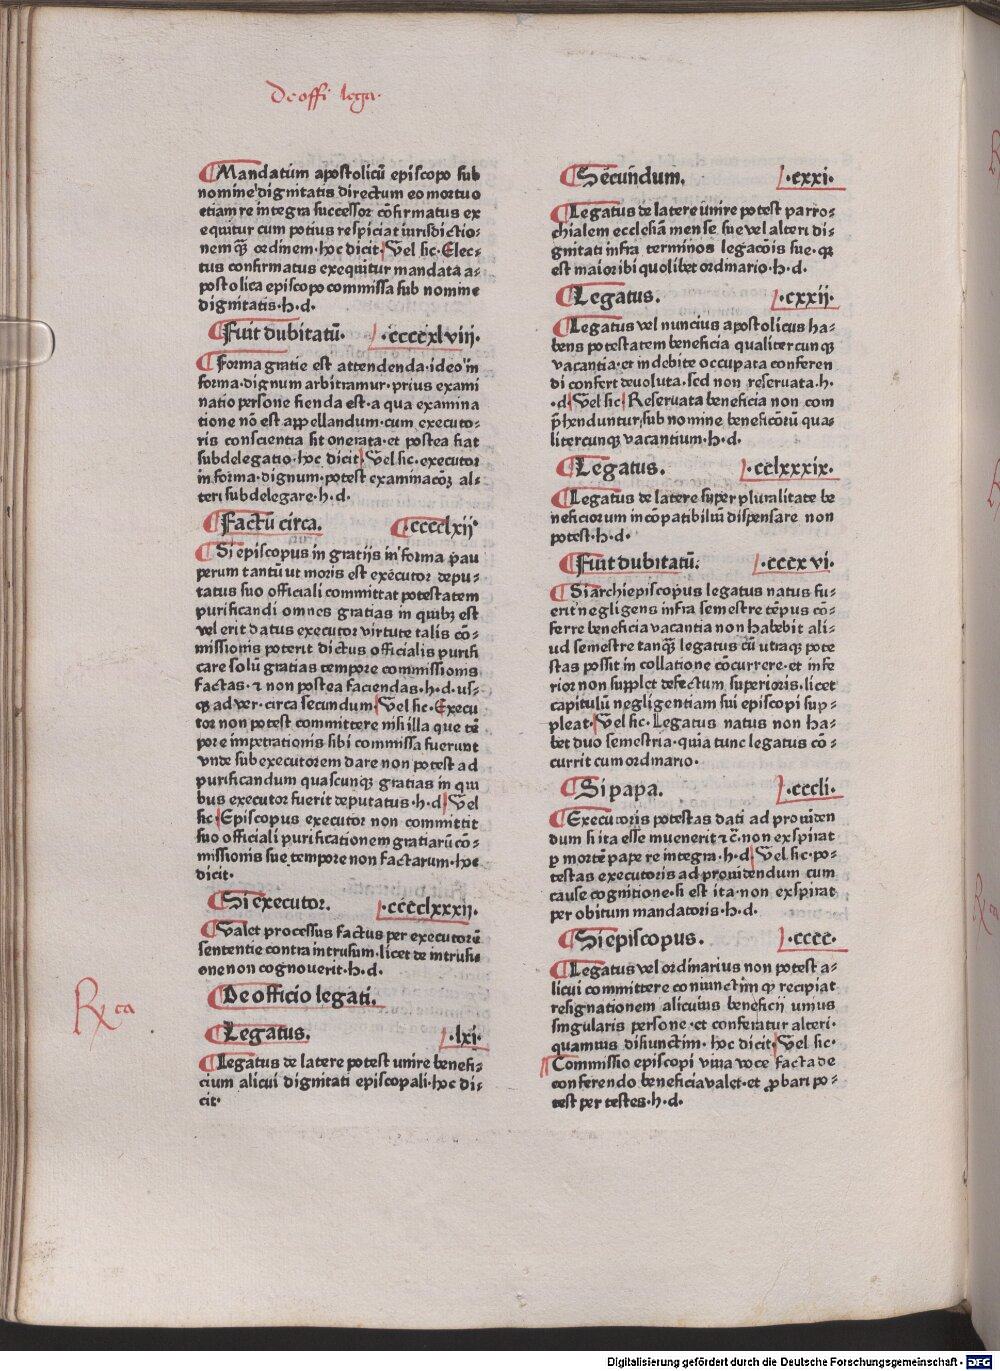 De offi lega.
¶Mandatum apostolicū episcopo sub
nomine dignitatis directum eo mortuo
etiam re integra successor cōfirmatus ex
equitur cum potius respiciat iurisdictio-
nem q̄ȝ ordinem·hoc dicit·Vel sic·Elec-
tus confirmatus exequitur mandata a-
postolica episcopo commissa sub nomine
dignitatis·h·d·
¶Fuit dubitatū· ·ccccxlviij·
¶Forma gratie est attendenda·ideo in
forma·dignum arbitramur·prius exami
natio persone fienda est·a qua examina
tione nō est appellandum·cum executo-
ris conscientia sit onerata·et postea fiat
subdelegatio·hoc dicit·Vel sic·executor
in forma·dignum·potest examinacōȝ al-
teri subdelegare·h·d·
¶Factū circa. ¶·cccclxij·
¶Si episcopus in gratijs in forma pau
perum tantū ut moris est executor depu-
tatus suo officiali committat potestatem
purificandi omnes gratias in quibȝ est
vel erit datus executor virtute talis cō-
missionis poterit dictus officialis purifi
care solū gratias tempore commissionis
factas·⁊ non postea faciendas·h·d·us-
qȝ ad ver·circa secundum·Vel sic·Execu
tor non potest committere nisi illa que tē
pore impetrationis sibi commissa fuerunt
vnde subexecutorem dare non potest ad
purificandum quascunqȝ gratias in qui
bus executor fuerit deputatus·h·d·Vel
sic·Episcopus executor non committit
suo officiali purificationem gratiarū cō-
missionis sue tempore non factarum·hoc
dicit·
¶Si executor. ·cccclxxxij·
¶Valet processus factus per executorē
sententie contra intrusum·licet de intrusi-
one non cognouerit·h·d·
¶De officio legati.
¶Legatus. ·lxi·
¶Legatus de latere potest unire benefi-
cium alicui dignitati episcopali·hoc di-
cit·
Rx ca
¶Secundum. ·cxxi·
¶Legatus de latere unire potest parro-
chialem ecclesiā mense sue vel alteri di-
gnitati infra terminos legacōis sue·qȝ
est maior ibi quolibet ordinario·h·d·
¶Legatus. ·cxxij·
¶Legatus vel nuncius apostolicus ha-
bens potestatem beneficia qualitercunqȝ
vacantia·et indebite occupata conferen
di confert deuoluta·sed non reseruata·h·
·d·Vel sic·Reseruata beneficia non com
p̄henduntur sub nomine beneficōrū qua-
litercunqȝ vacantium·h·d·
¶Legatus. ·cclxxxix·
¶Legatus de latere super pluralitate be
neficiorum incōpatibiliū dispensare non
potest·h·d·
¶Fuit dubitatū· ·cccxvi·
¶Si archiepiscopus legatus natus fu-
erit negligens infra semestre tēpus cō-
ferre beneficia vacantia non habebit ali-
ud semestre tanqȝ legatus cū utraqȝ pote
stas possit in collatione cōcurrere·et infe
rior non supplet defectum superioris·licet
capitulū negligentiam sui episcopi sup-
pleat·Vel sic·Legatus natus non ha-
bet duo semestria·quia tunc legatus cō-
currit cum ordinario·
¶Si papa. ·cccli·
¶Executoris potestas dati ad prouiden
dum si ita esse inuenerit ⁊c̄·non exspirat
ꝑ mortē pape re integra·h·d·Vel sic·po-
testas executoris ad prouidendum cum
cause cognitione·si est ita·non exspirat
per obitum mandatoris·h·d·
¶Si episcopus. ·cccc·
¶Legatus vel ordinarius non potest a-
licui committere coniunctim qȝ recipiat
resignationem alicuius beneficij unius
singularis persone·et conferatur alteri·
quamuis disiunctim·hoc dicit·Vel sic·
¶Commissio episcopi viua voce facta de
conferendo beneficia valet·et ꝓbari po-
test per testes·h·d·
Digitalisierung gefördert durch die Deutsche Forschungsgemeinschaft · DFG